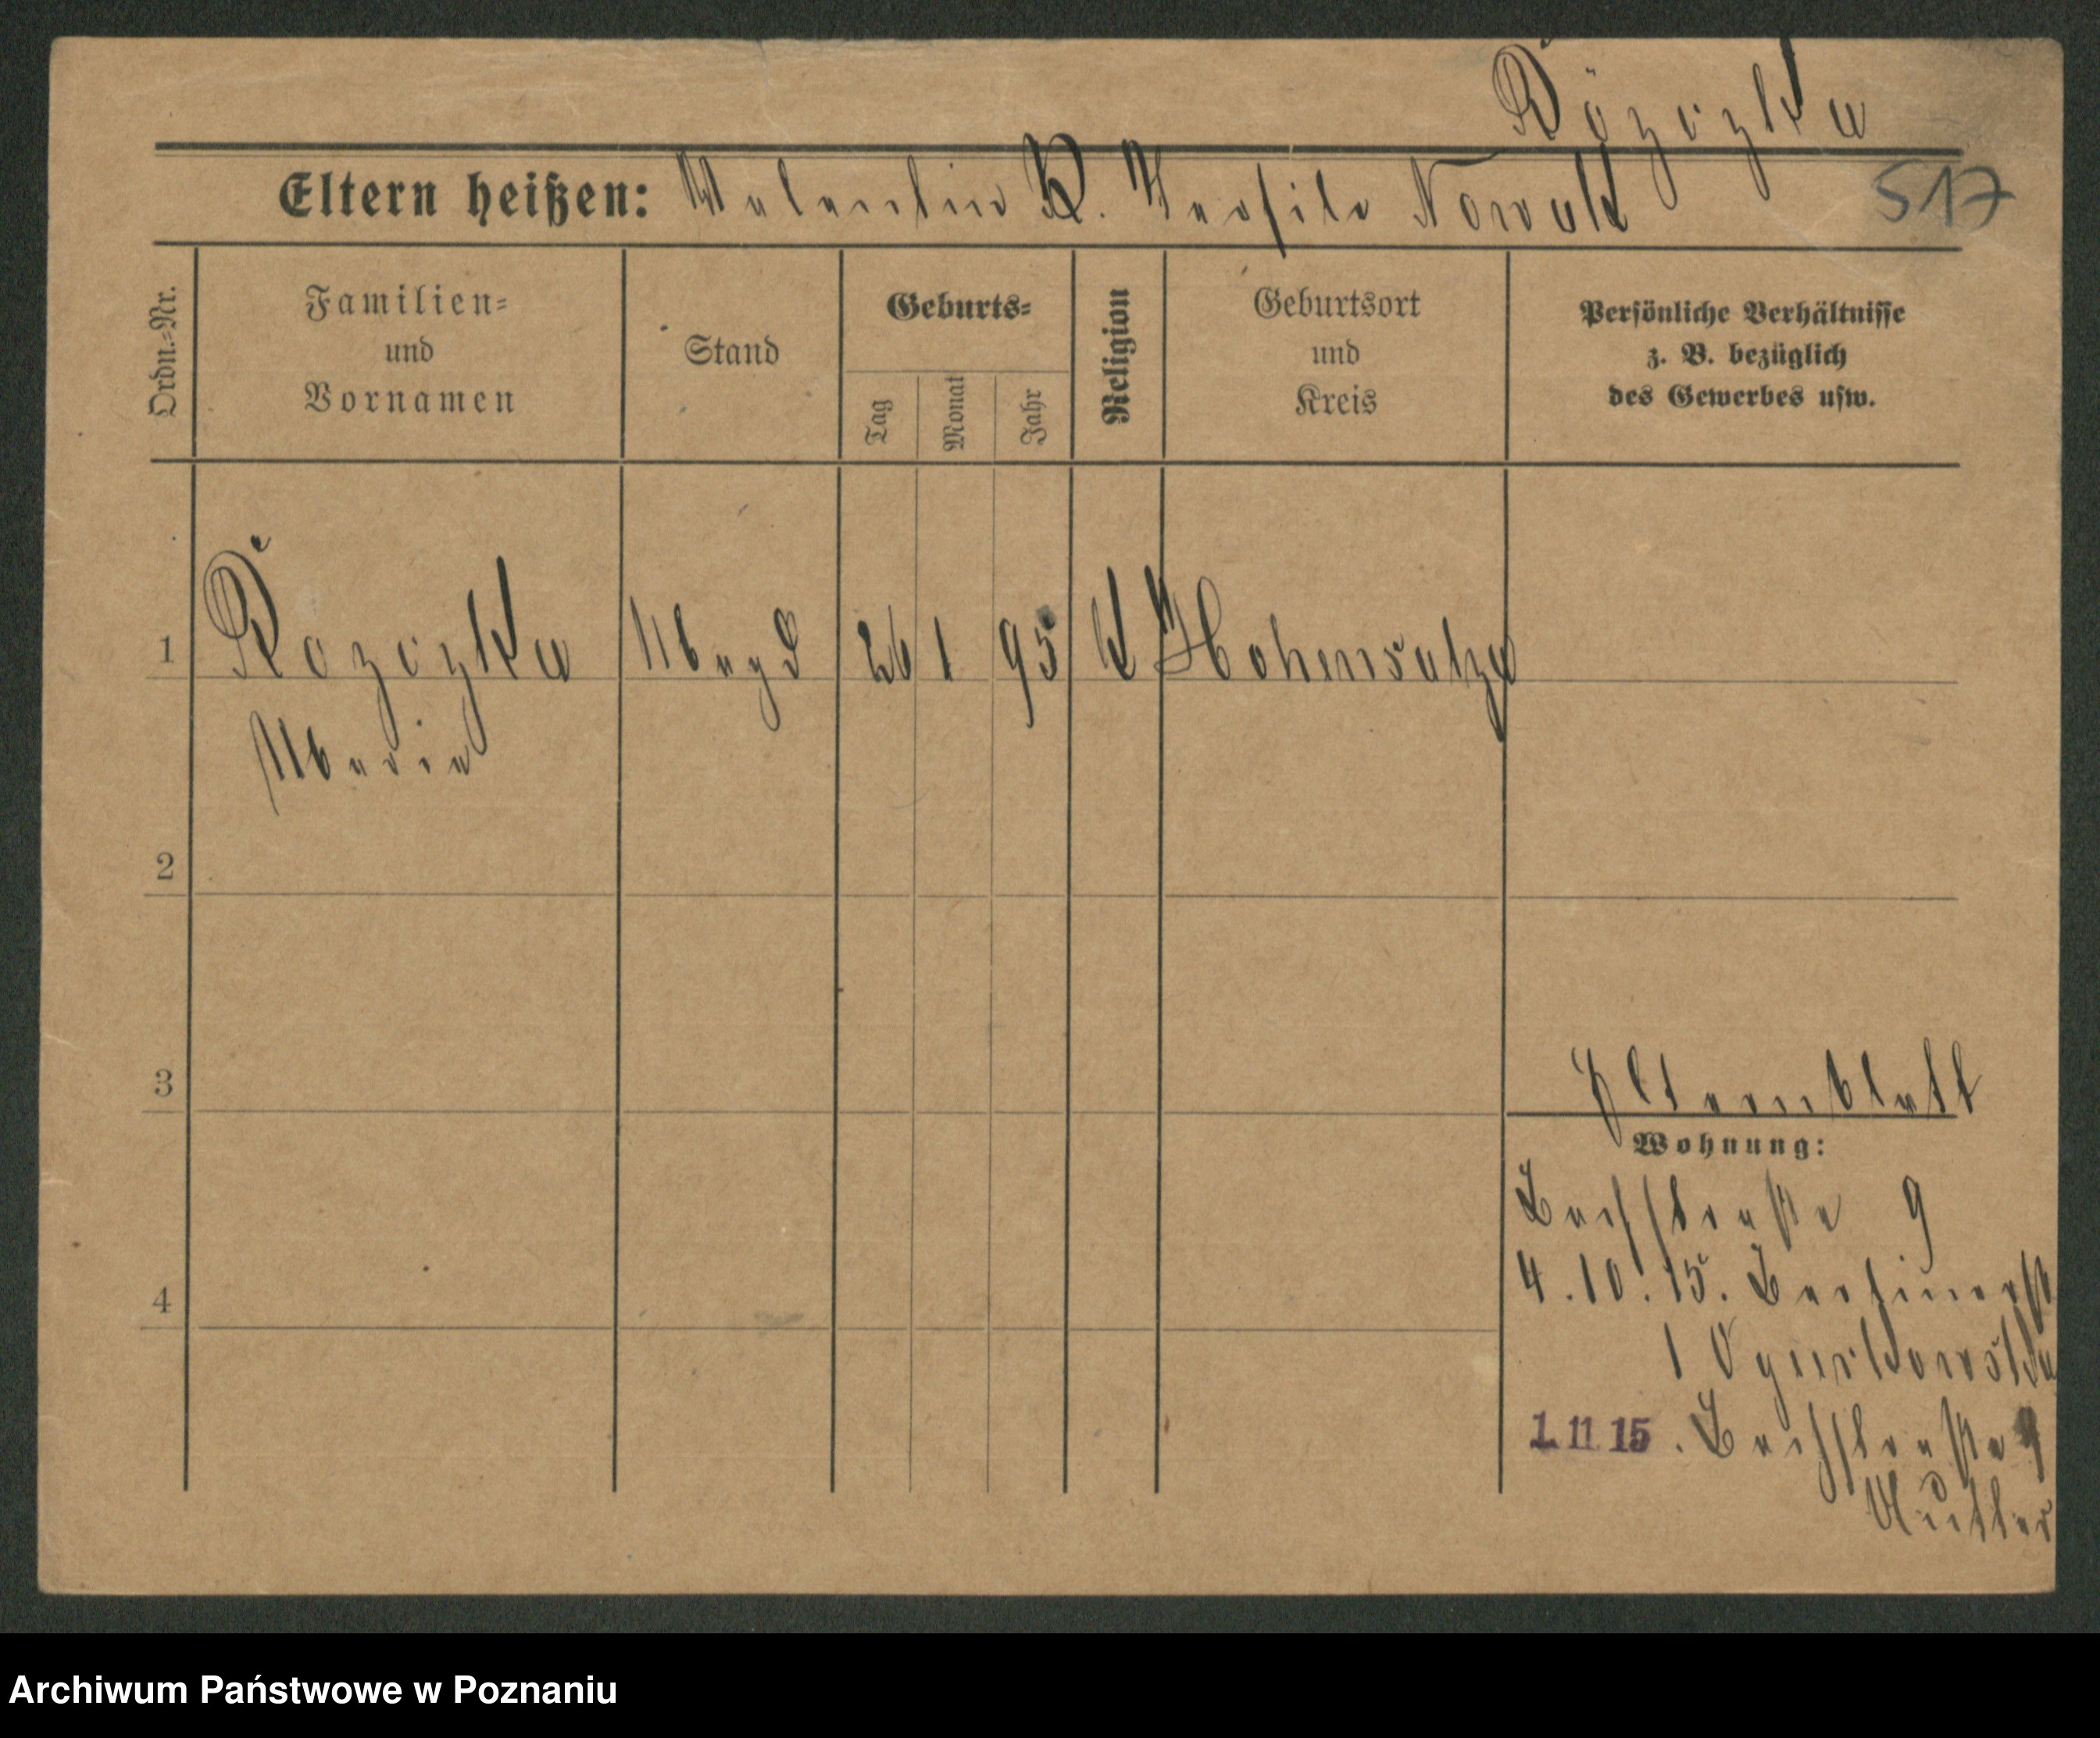 Rózczka
Eltern heißen: Valentin R. Teofila Nowak 517
Ordn.=Nr.
Familien=
und
Vornamen
Stand
Geburts=
Tag
Monat
Jahr
Religion
Geburtsort
und
Kreis
Persönliche Verhältnisse
z. B. bezüglich
des Gewerbes usw.
1 Magd 26 1 95 k Hohensalza
Maria
2
3
Elternblatt
Wohnung:
4
Bachstraße 9
4.10.15. Berlinerst
1 Ogurkowska
1.11.15. Bachstraße 9
Mutter
Archiwum Państwowe w Poznaniu